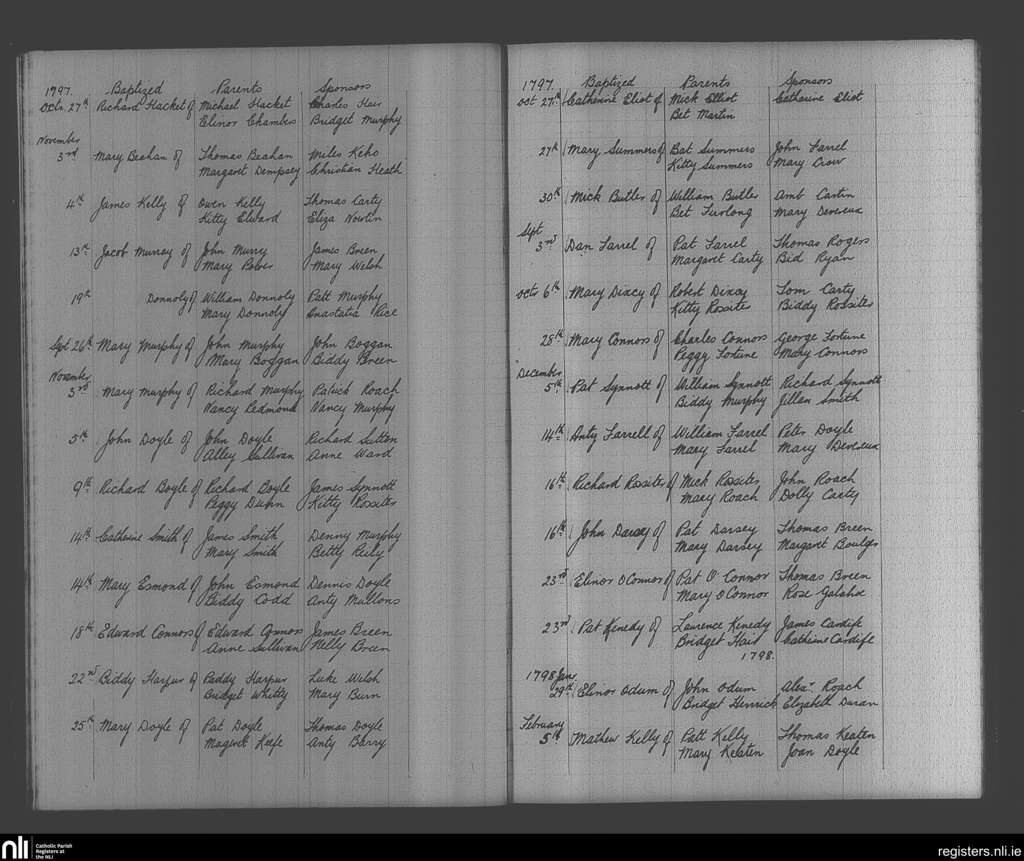 1797. Baptized Parents Sponsors
Octr. 27th Richard Hacket of Michael Hacket Charles Hair
Elinor Chambers Bridget Murphy
November
3rd Mary Beahan of Thomas Beahan Miles Keho
Margaret Dempsey Christian Heath
4th James Kelly of Owen Kelly Thomas Carty
Kitty Elward Eliza Nowlin
13th Jacob Murray of John Murry James Breen
Mary Power Mary Welsh
19th Donnoly of William Donnoly Patt Murphy
Mary Donnoly Anastatia Rice
Sept 26th Mary Murphy of John Murphy John Boggan
Mary Boggan Biddy Breen
November
3rd Mary Murphy of Richard Murphy Patrick Roach
Nancy Redmond Nancy Murphy
5th John Doyle of John Doyle Richard Sutton
Alley Sullivan Anne Ward
9th Richard Boyle of Richard Boyle James Synnott
Peggy Dunn Kitty Rossiter
14th Catherine Smith of James Smith Denny Murphy
Mary Smith Betty Reily
14th Mary Esmond of John Esmond Dennis Doyle
Biddy Codd Anty Mullons
18th Edward Connors of Edward Connors James Breen
Anne Sullivan Nelly Breen
22nd Biddy Harpur of Paddy Harpur Luke Welsh
Bridget Whitty Mary Burn
25th Mary Doyle of Pat Doyle Thomas Doyle
Magaret Keefe Anty Barry
1797. Baptized Parents Sponsors
Oct 27th Catherine Eliot of Mick Elliot Catharine Eliot
Bet Martin
27th Mary Summers of Bat Summers John Farrel
Kitty Summers Mary Crow
30th Mick Butler of William Butler Amb Carten
Bet Furlong Mary Devereux
Sept
3rd Dan Farrel of Pat Farrel Thomas Rogers
Margaret Carty Bid Ryan
Octr 6th Mary Dixcy of Robert Dixcy Tom Carty
Kitty Rossiter Biddy Rossiter
28th Mary Connors of Charles Connors George Fortune
Peggy Fortune Mary Connors
December
5th Pat Synnott of William Synnott Richard Synnott
Biddy Murphy Jillen Smith
14th Anty Farrell of William Farrel Peter Doyle
Mary Farrel Mary Devereux
16th Richard Rossiter of Mick Rossiter John Roach
Mary Roach Dolly Carty
16th John Darsey of Pat Darsey Thomas Breen
Mary Darsey Margaret Boulger
23rd Elinor O'Connor of Pat O'Connor Thomas Breen
Mary O'Connor Rose
23rd Pat Kenedy of Laurence Kenedy James Cardife
Bridget Hair Catherine Cardife
1798.
1798 Jany.
29th Elinor Odum of John Odum Alexr. Roach
Bridget Henrick Elizabeth Duran
February
5th Mathew Kelly of Patt Kelly Thomas Keaten
Mary Keaten Joan Doyle
nli Catholic Parish
Registers at
the NLI
registers.nli.ie